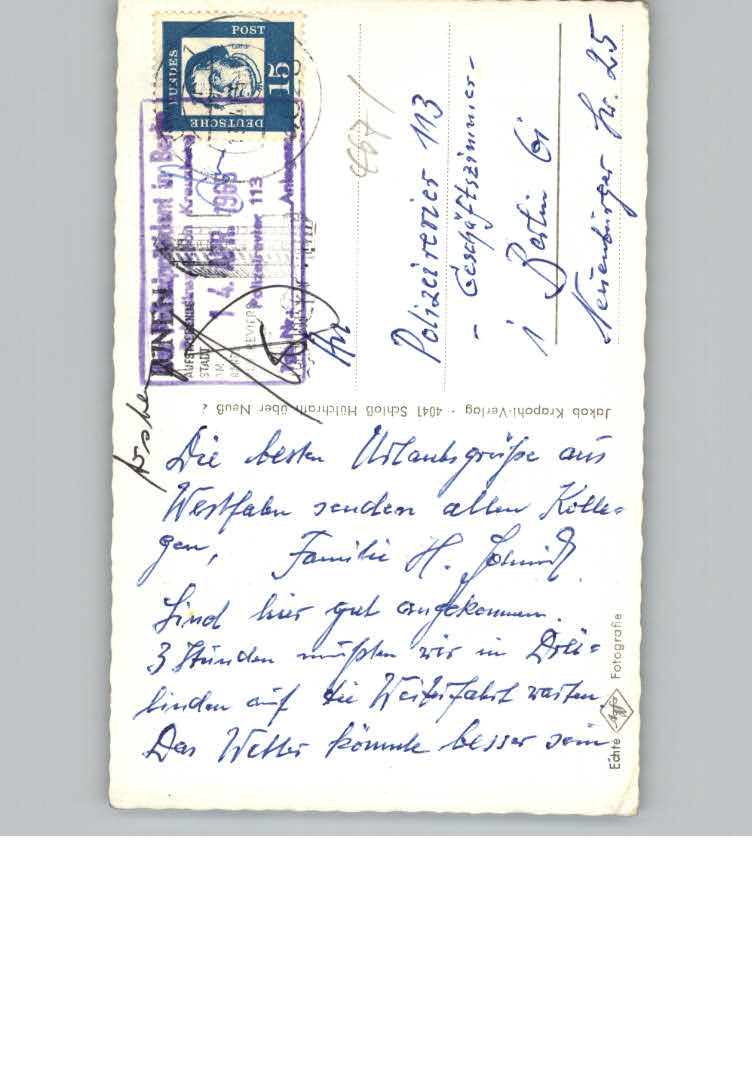 Die besten Urlaubsgrüße aus
Westfalen senden allen Kolle-
gen, Familie H. Schmidt
Sind hier gut angekommen.
3 Stunden mußten wir in Drei-
linden auf die Weiterfahrt warten.
Das Wetter könnte besser sein
An
Polizeirevier 113
- Geschäftszimmer -
1 Berlin 61
Neuenburger Str. 25
467/
DEUTSCHE
BUNDES
POST
15
14. APR. 1965
Polizeirevier 113
Anlagen
STADT
AM
Jakob Krapohl-Verlag · 4041 Schloß Hülchrath über Neuß 2
Echte Agfa Fotografie